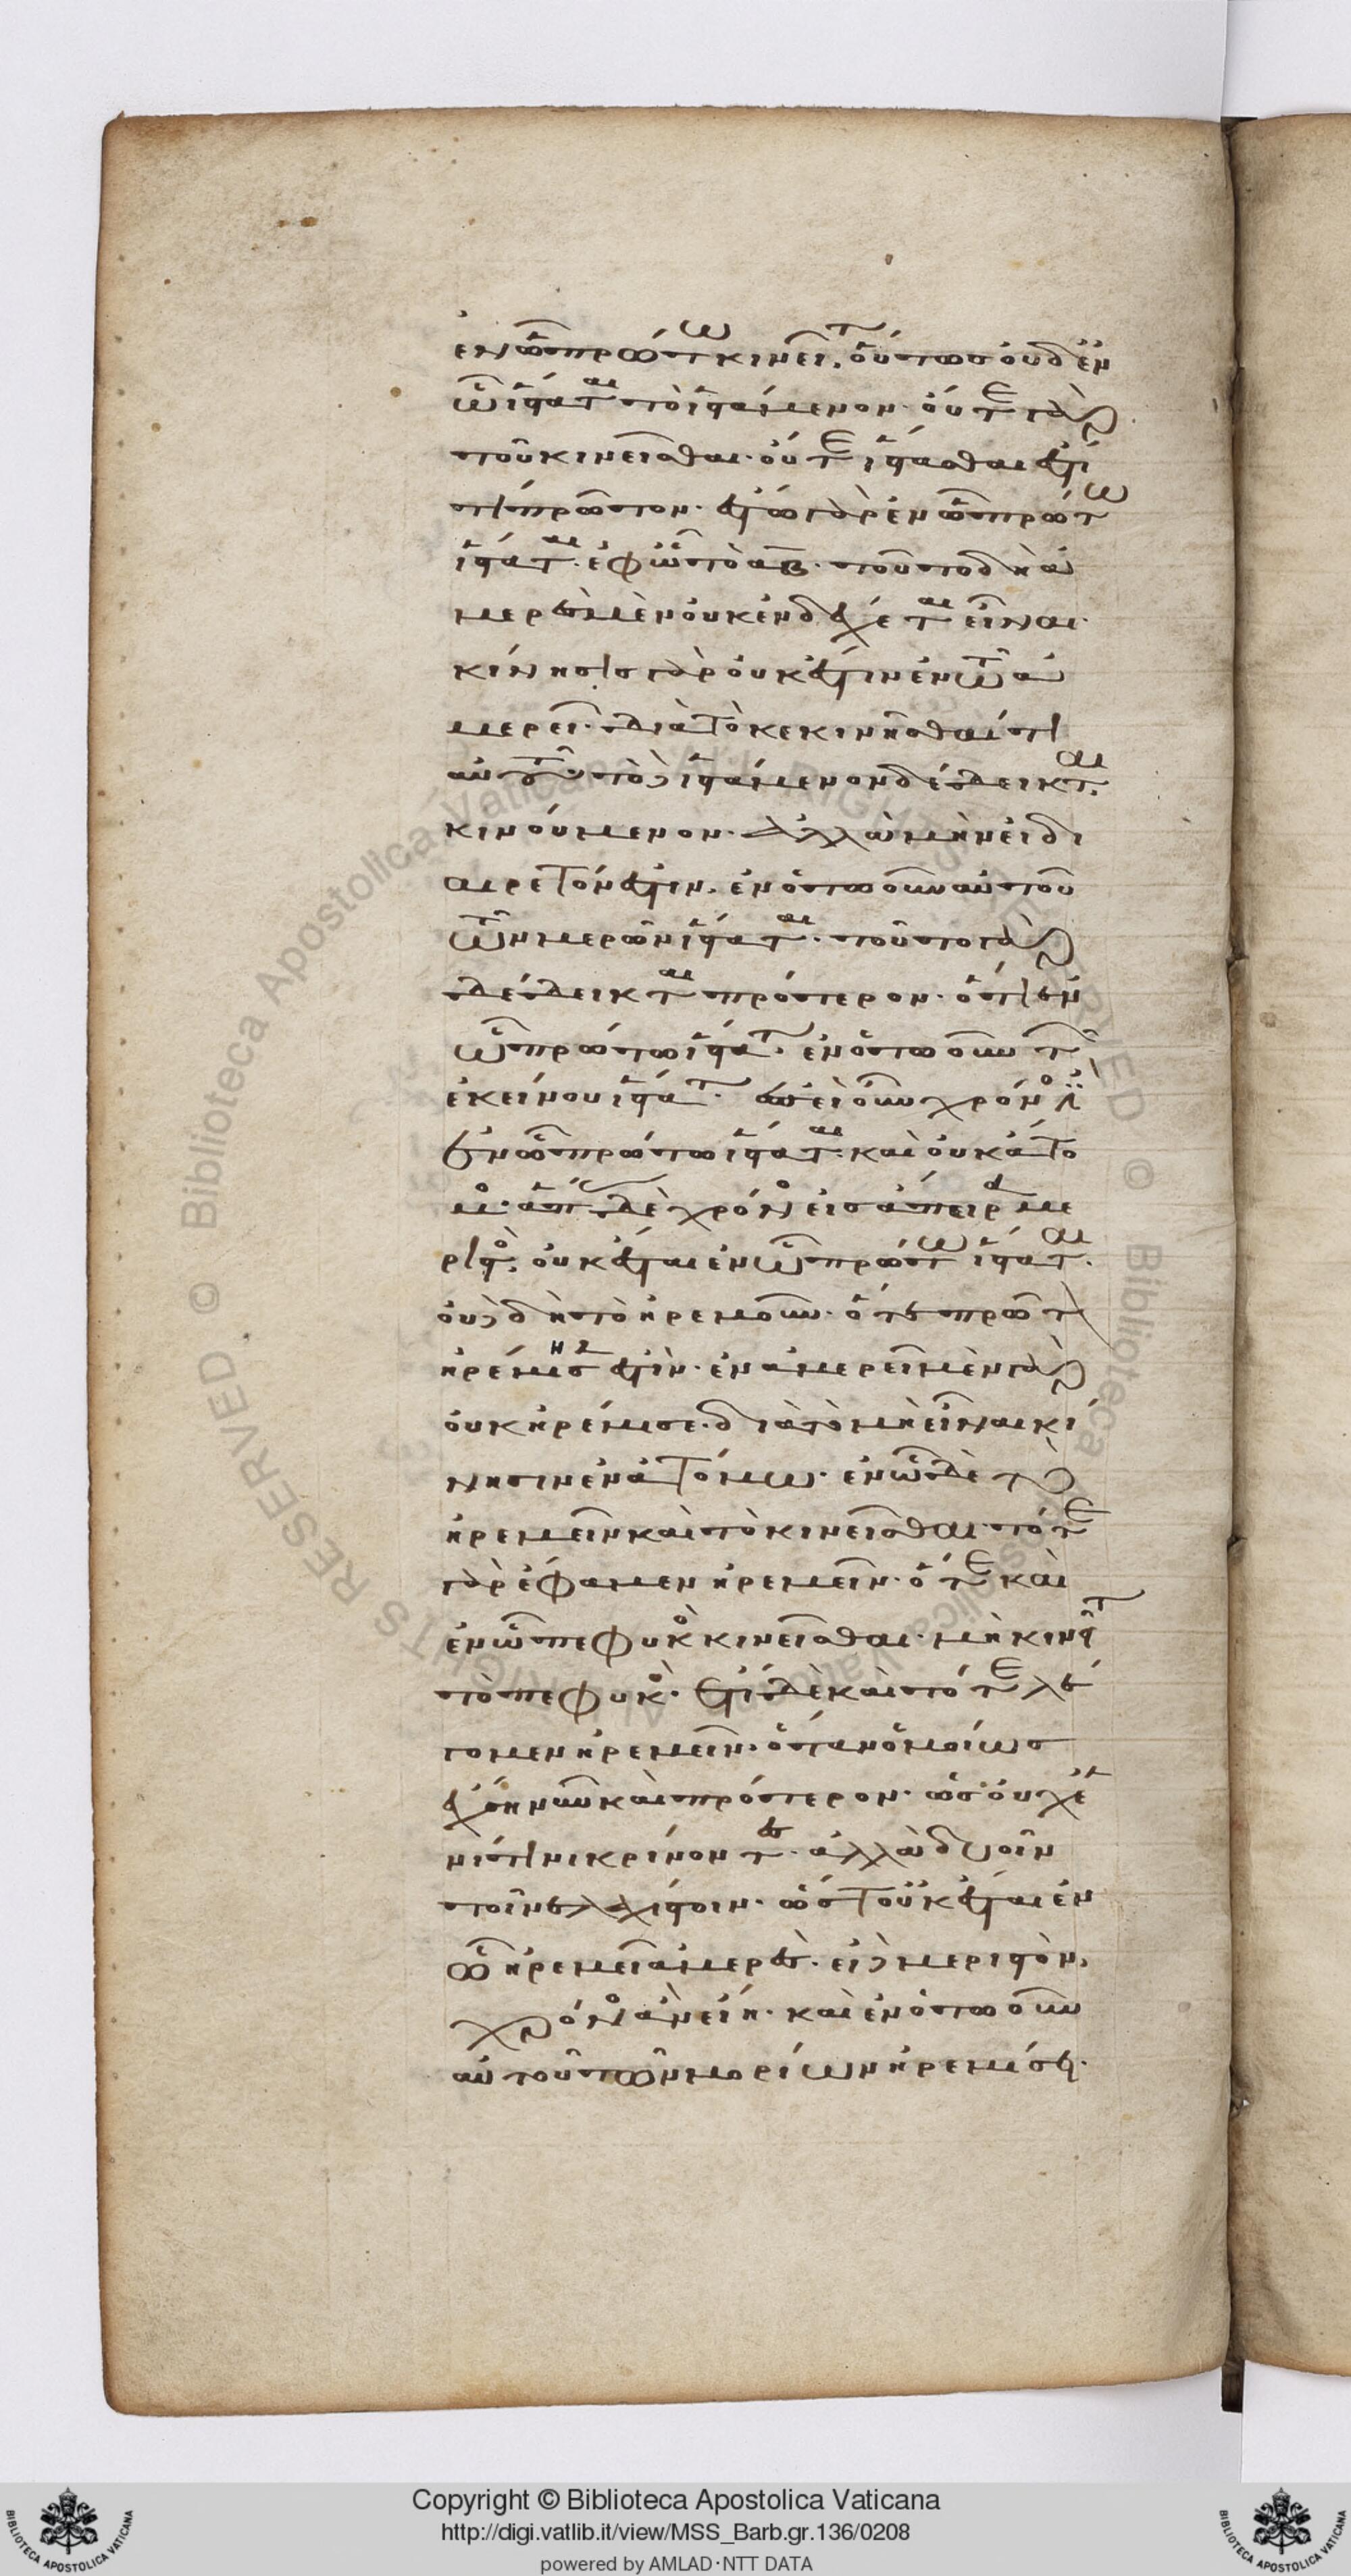 ἐν ᾧ πρώτω κινεῖτ. οὕτωσ οὐδ ἐν
ᾧ ἵσταται τὸ ἱστάμενον. οὔτε γὰρ
τοῦ κινεῖσθαι. οὔτε ἵστασθαι ἐστί
τι πρῶτον. ἔστω γὰρ ἐν ᾧ πρώτω
ἵσταται. ἐφ ᾧ τὸ αβ. τοῦτο δὴ ἀ
μερὲσ μὲν οὐκ ἐνδέχεται εἶναι.
κίνησισ γὰρ οὐκ ἔστιν ἐν τῶ ἀ
μερεῖ. διὰ τὸ κεκινῆσθαί τι
αὐτοῦ. τὸ δ ἱστάμενον δέδεικται
κινούμενον. ἀλλὰ μὴν εἰ δι
αιρετόν ἐστιν. ἐν ὁτωοῦν αὐτοῦ
τῶν μερῶν ἵσταται. τοῦτο γὰρ
δέδεικται πρότερον. ὅτι ἐν
ᾧ πρώτω ἵστατ. ἐν ὁτωοῦν τῶν
ἐκείνου ἵστατ. ἐπεὶ οὖν χρόνοσ ἐστὶν
ἐν ᾧ πρώτω ἵσταται. καὶ οὐκ ἄτο
μοσ. ἅπασ δὲ χρόνοσ εἰσ ἄπειρα με
ριστόσ. οὐκ ἔσται ἐν ᾧ πρώτω ἵσταται.
οὐδὲ δὴ τὸ ἠρεμοῦν. ὅτε πρῶτον
ἠρέμησεν ἔστιν. ἐν ἀμερεῖ μὲν γὰρ
οὐκ ἠρέμησε. διὰ τὸ μὴ εἶναι κί
νησιν ἐν ἀτόμω. ἐν ᾧ δὲ τὸ
ἠρεμεῖν καὶ τὸ κινεῖσθαι. τότε
γὰρ ἔφαμεν ἠρεμεῖν. ὅτε καὶ
ἐν ᾧ πεφυκὸσ κινεῖσθαι. μὴ κινῆτ
τὸ πεφυκόσ. ἔτι δὲ καὶ τότε λέ
γομεν ἠρεμεῖν. ὅταν ὁμοίωσ
ἔχη νῦν καὶ πρότερον. ὡσ οὐχ ἑ
νί τινι κρίνοντεσ. ἀλλὰ δυοῖν
τοῖν ἐλαχίστοιν. ὥστ οὐκ ἔσται ἐν
ᾧ ἠρεμεῖ ἀμερέσ. εἰ δὲ μεριστὸν.
χρόνοσ ἂν εἴη. καὶ ἐν ὁτωοῦν
αὐτοῦ τῶν μορίων ἠρεμήσει.
Copyright © Biblioteca Apostolica Vaticana
http://digi.vatlib.it/view/MSS_Barb.gr.136/0208
powered by AMLAD·NTT DATA